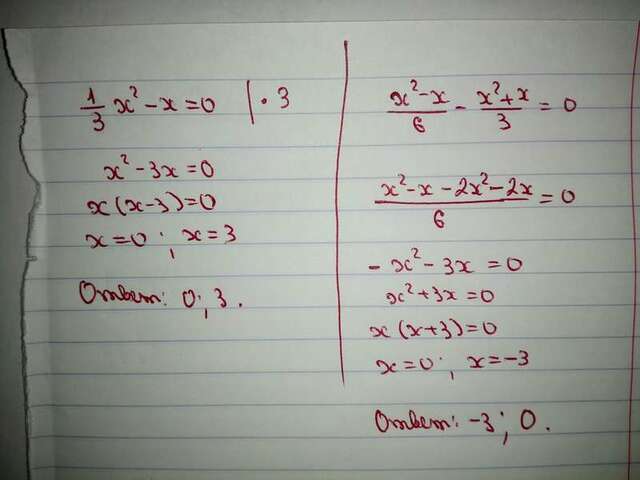 1/3 x² - x = 0 | · 3
x² - 3x = 0
x(x-3) = 0
x = 0; x = 3
Ответ: 0; 3.
(x² - x)/6 - (x² + x)/3 = 0
(x² - x - 2x² - 2x)/6 = 0
- x² - 3x = 0
x² + 3x = 0
x(x+3) = 0
x = 0; x = -3
Ответ: -3; 0.